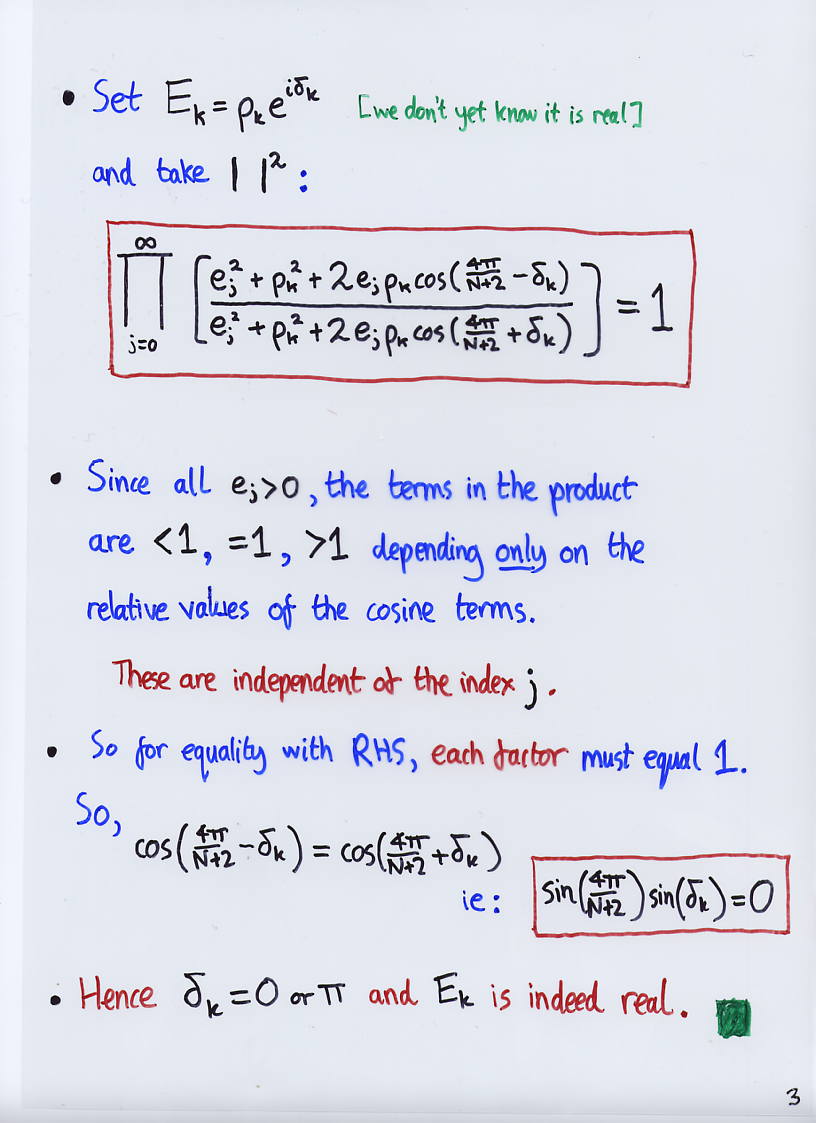 • Set E_k = ρ_k e^{iδ_k} [we don't yet know it is real]
and take | |² :
∞∏j=0 [ (e_j² + ρ_k² + 2e_jρ_k cos(4π/(N+2) − δ_k)) / (e_j² + ρ_k² + 2e_jρ_k cos(4π/(N+2) + δ_k)) ] = 1
• Since all e_j>0, the terms in the product
are <1, =1, >1 depending only on the
relative values of the cosine terms.
These are independent of the index j.
• So for equality with RHS, each factor must equal 1.
So,
cos(4π/(N+2) − δ_k) = cos(4π/(N+2) + δ_k)
ie: sin(4π/(N+2)) sin(δ_k) = 0
• Hence δ_k = 0 or π and E_k is indeed real.
3